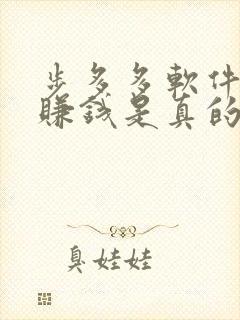 步多多軟件
賺錢是真的
臭娃娃